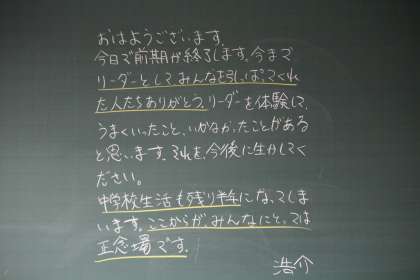 おはようございます。
今日で前期が終了します。今まで
リーダーとしてみんなを引っぱってくれ
た人たちありがとう。リーダーを体験して、
うまくいったこと、いかなかったことがある
と思います。それを、今後に生かしてく
ださい。
中学校生活も残り半年になってしま
います。ここからが、みんなにとっては
正念場です。
浩介